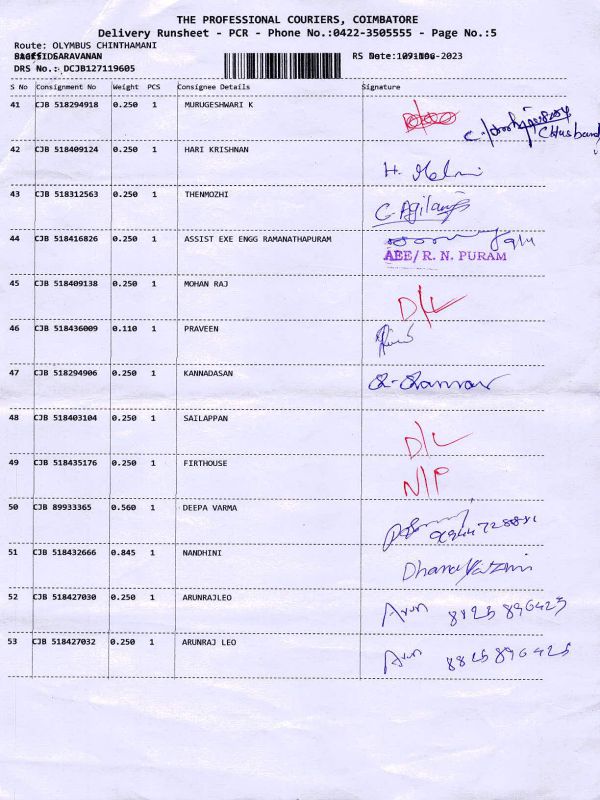 THE PROFESSIONAL COURIERS, COIMBATORE
Delivery Runsheet - PCR - Phone No.:0422-3505555 - Page No.:5
Route: OLYMBUS CHINTHAMANI
SARAVANAN
DRS No.: DCJB127119605
S No Consignment No Weight PCS Consignee Details Signature
41 CJB 518294918 0.250 1 MURUGESHWARI K
C Husband
42 CJB 518409124 0.250 1 HARI KRISHNAN
43 CJB 518312563 0.250 1 THENMOZHI
44 CJB 518416826 0.250 1 ASSIST EXE ENGG RAMANATHAPURAM
AEE/R. N. PURAM
45 CJB 518409138 0.250 1 MOHAN RAJ D/L
46 CJB 518436009 0.110 1 PRAVEEN
47 CJB 518294906 0.250 1 KANNADASAN
48 CJB 518403104 0.250 1 SAILAPPAN D/L
49 CJB 518435176 0.250 1 FIRTHOUSE N/P
50 CJB 89933365 0.560 1 DEEPA VARMA
51 CJB 518432666 0.845 1 NANDHINI
52 CJB 518427030 0.250 1 ARUNRAJLEO Arun
53 CJB 518427032 0.250 1 ARUNRAJ LEO Arun